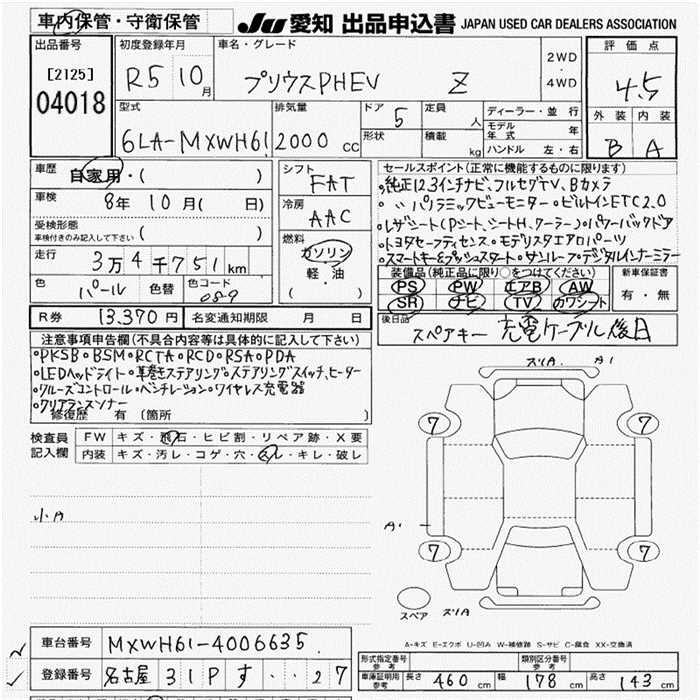 車内保管・守衛保管
JU 愛知 出品申込書 JAPAN USED CAR DEALERS ASSOCIATION
出品番号
[2125]
04018
初度登録年月
R5 10月
車名・グレード
プリウスPHEV Z
2WD
・
4WD
評価点
4.5
外装 内装
B A
型式
6LA-MXWH61
排気量
2000 cc
ドア
5
形状
定員
人
積載
kg
ディーラー・並行
モデル年式 年
ハンドル 左・右
車歴
自家用・( )
車検
8年 10月 ( 日)
受検形態
車検付きのみ記入して下さい ( )
走行
3万4千751km
色
パール
色替
色コード
089
シフト
FAT
冷房
AAC
燃料
ガソリン
軽・油
( )
セールスポイント(正常に機能するものに限ります)
・純正12.3インチナビ、フルセグTV、Bカメラ
・〃パノラミックビューモニター・ビルトインETC2.0
・レザーシート(Pシート、シートH、クーラー)・パワーバックドア
・トヨタセーフティセンス・モデリスタエアロパーツ
・スマートキー&プッシュスタート・サンルーフ・デジタルインナーミラー
装備品(純正品に限り○をつけてください)
PS PW エアB AW
SR ナビ TV カワシート
新車保証書
有・無
R券 13,370円
名変通知期限 月 日
後日品
スペアキー 充電ケーブル後日
注意事項申告欄(不具合内容等は具体的に記入して下さい)
・PKSB・BSM・RCTA・RCD・RSA・PDA
・LEDヘッドライト・革巻きステアリング・ステアリングスイッチ、ヒーター
・クルーズコントロール・ベンチレーション・ワイヤレス充電器
・クリアランスソナー
修復歴 有 (箇所 )
検査員記入欄
FW キズ・飛石・ヒビ割・リペア跡・X要
内装 キズ・汚レ・コゲ・穴・スレ・キレ・破レ
小A
スリA A1
7 7
A1
7 7
スペア
スリA
A-キズ E-エクボ U-凹み W-補修跡 S-サビ C-腐食 XX-交換済
車台番号 MXWH61-4006635
登録番号 名古屋 31P す ・・27
形式指定番号
参考
類別区分番号
参考
車庫証明用
参考
長さ 460 cm 幅 178 cm 高さ 143 cm